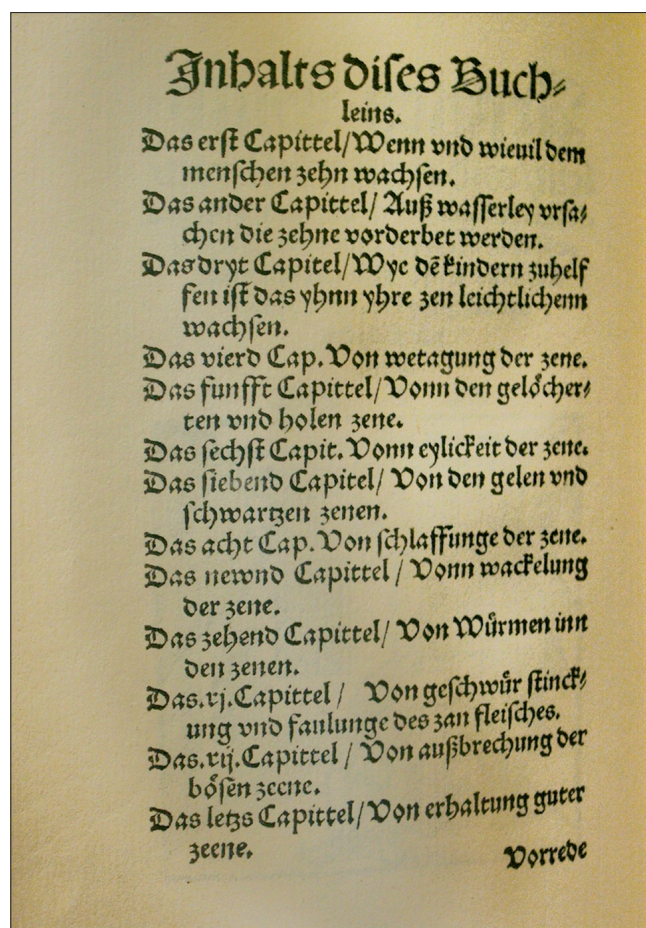 Inhalts diſes Buch⸗
leins.
Das erſt Capittel/Wenn vnd wieuil dem
menſchen zehn wachſen.
Das ander Capittel/ Auß waſſerley vrſa⸗
chen die zehne vorderbet werden.
Das dryt Capitel/Wye dē kindern zuhelf
fen iſt das yhnn yhre zen leichtlichenn
wachſen.
Das vierd Cap. Von wetagung der zene.
Das funfft Capittel/Vonn den gelöcher⸗
ten vnd holen zene.
Das ſechſt Capit. Vonn eylickeit der zene.
Das ſiebend Capitel/ Von den gelen vnd
ſchwartzen zenen.
Das acht Cap. Von ſchlaffunge der zene.
Das newnd Capittel / Vonn wackelung
der zene.
Das zehend Capittel/ Von Würmen inn
den zenen.
Das.xj.Capittel / Von geſchwür ſtinck⸗
ung vnd faulunge des zan fleiſches.
Das.xij.Capittel / Von außbrechung der
böſen zeene.
Das letzs Capittel/Von erhaltung guter
zeene.
Vorrede